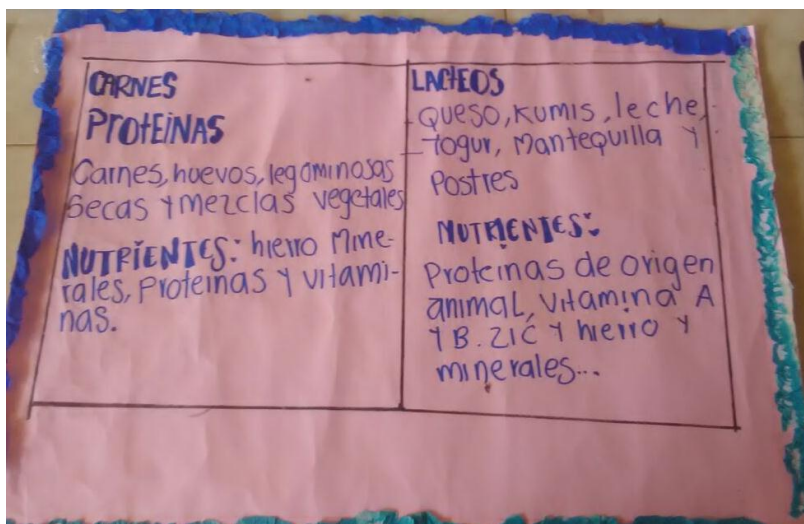 CARNES
PROTEINAS
Carnes, huevos, legominosas
Secas y mezclas vegetales
NUTRIENTES: hierro Mine-
rales, Proteinas y vitami-
nas.
LACTEOS
- Queso, Kumis, leche,
- Yogur, Mantequilla y
Postres
NUTRIENTES:
Proteinas de origen
animal, vitamina A
y B. ZIC y hierro y
minerales...